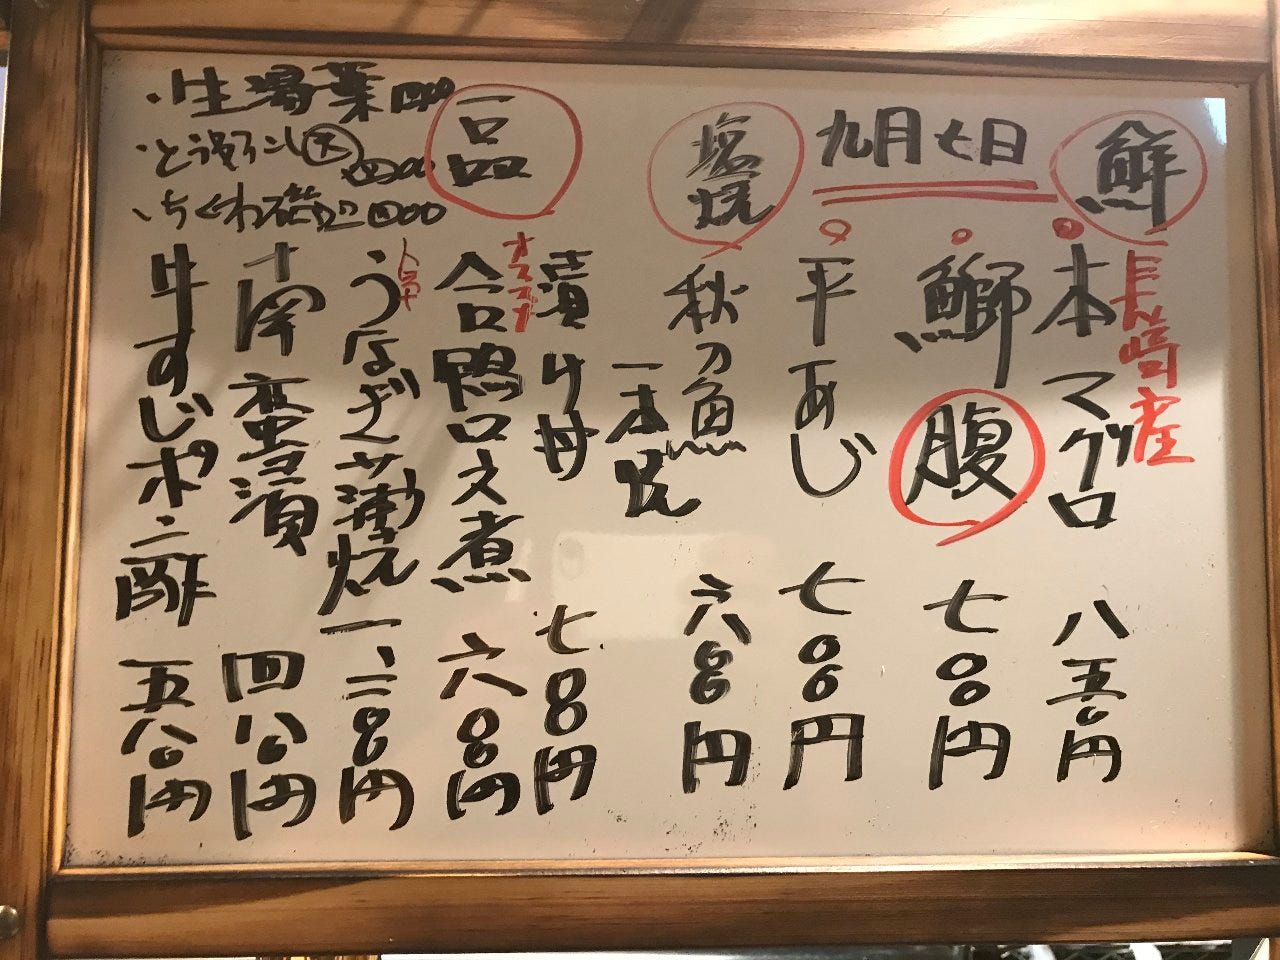 九月七日
鮮
長崎産
本マグロ 八五〇円
鰤 腹 七〇〇円
平あじ 七〇〇円
塩焼
秋刀魚
一本焼
六〇〇円
一品
漬け丼 七〇〇円
オススメ
合鴨ロース煮 六〇〇円
うなぎ
薄焼 一、二〇〇円
南蛮漬 四八〇円
牛すじポン酢 五八〇円
・生湯葉 四〇〇
・とうもろこし天 四〇〇
・ちくわ磯辺 四〇〇